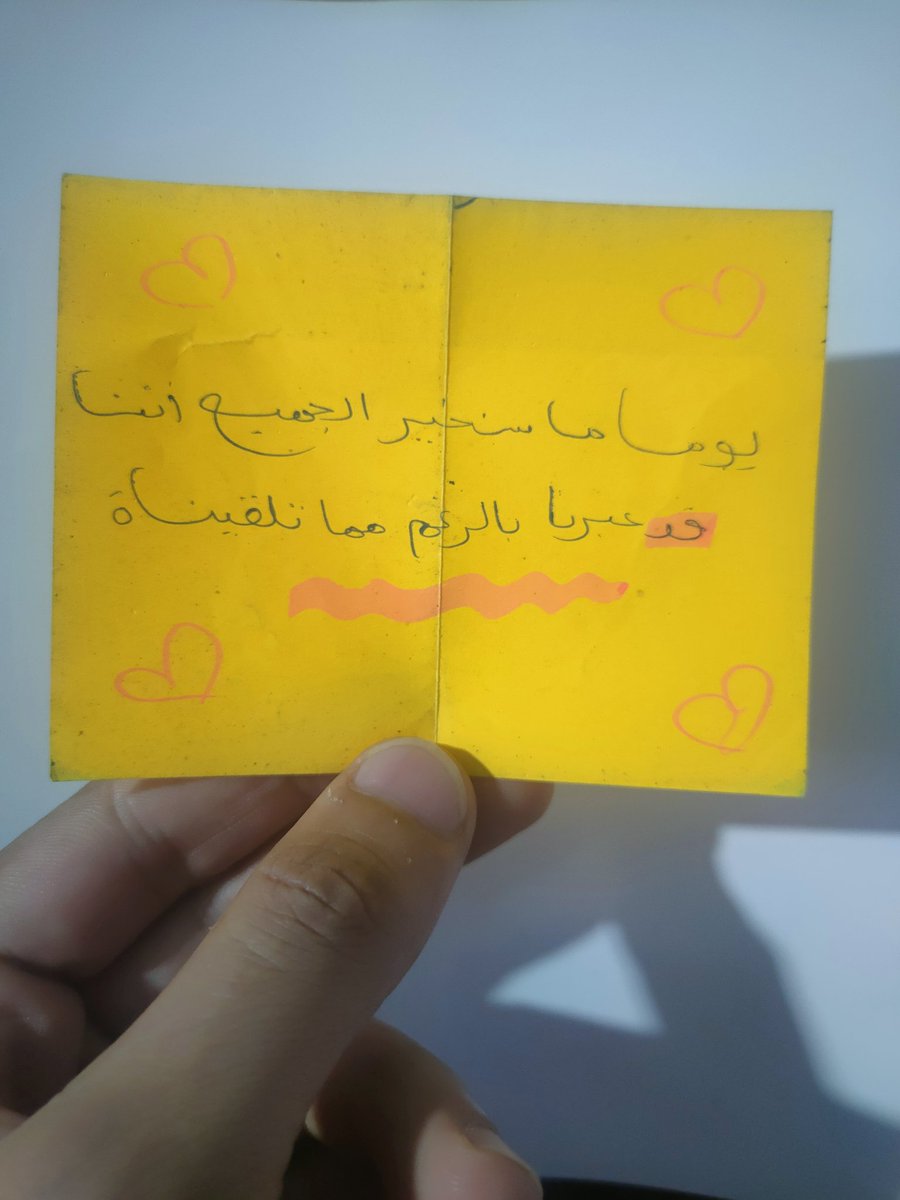 يوما ما سنخبر الجميع أننا
قد عبرنا بالرغم مما تلقيناة